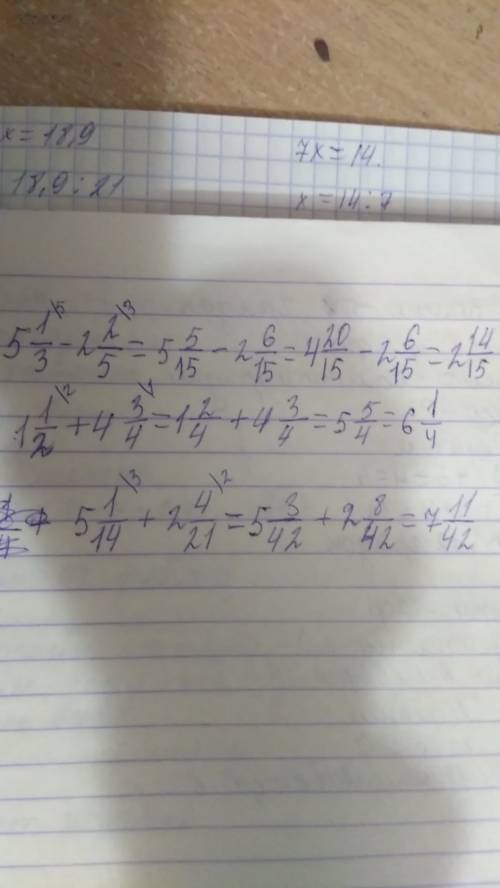 x = 18,9
7x = 14.
18,9 : 21
x = 14 : 7
5 1/3 \5 - 2 2/5 \3 = 5 5/15 - 2 6/15 = 4 20/15 - 2 6/15 = 2 14/15
1 1/2 \2 + 4 3/4 \1 = 1 2/4 + 4 3/4 = 5 5/4 = 6 1/4
5 1/14 \3 + 2 4/21 \2 = 5 3/42 + 2 8/42 = 7 11/42